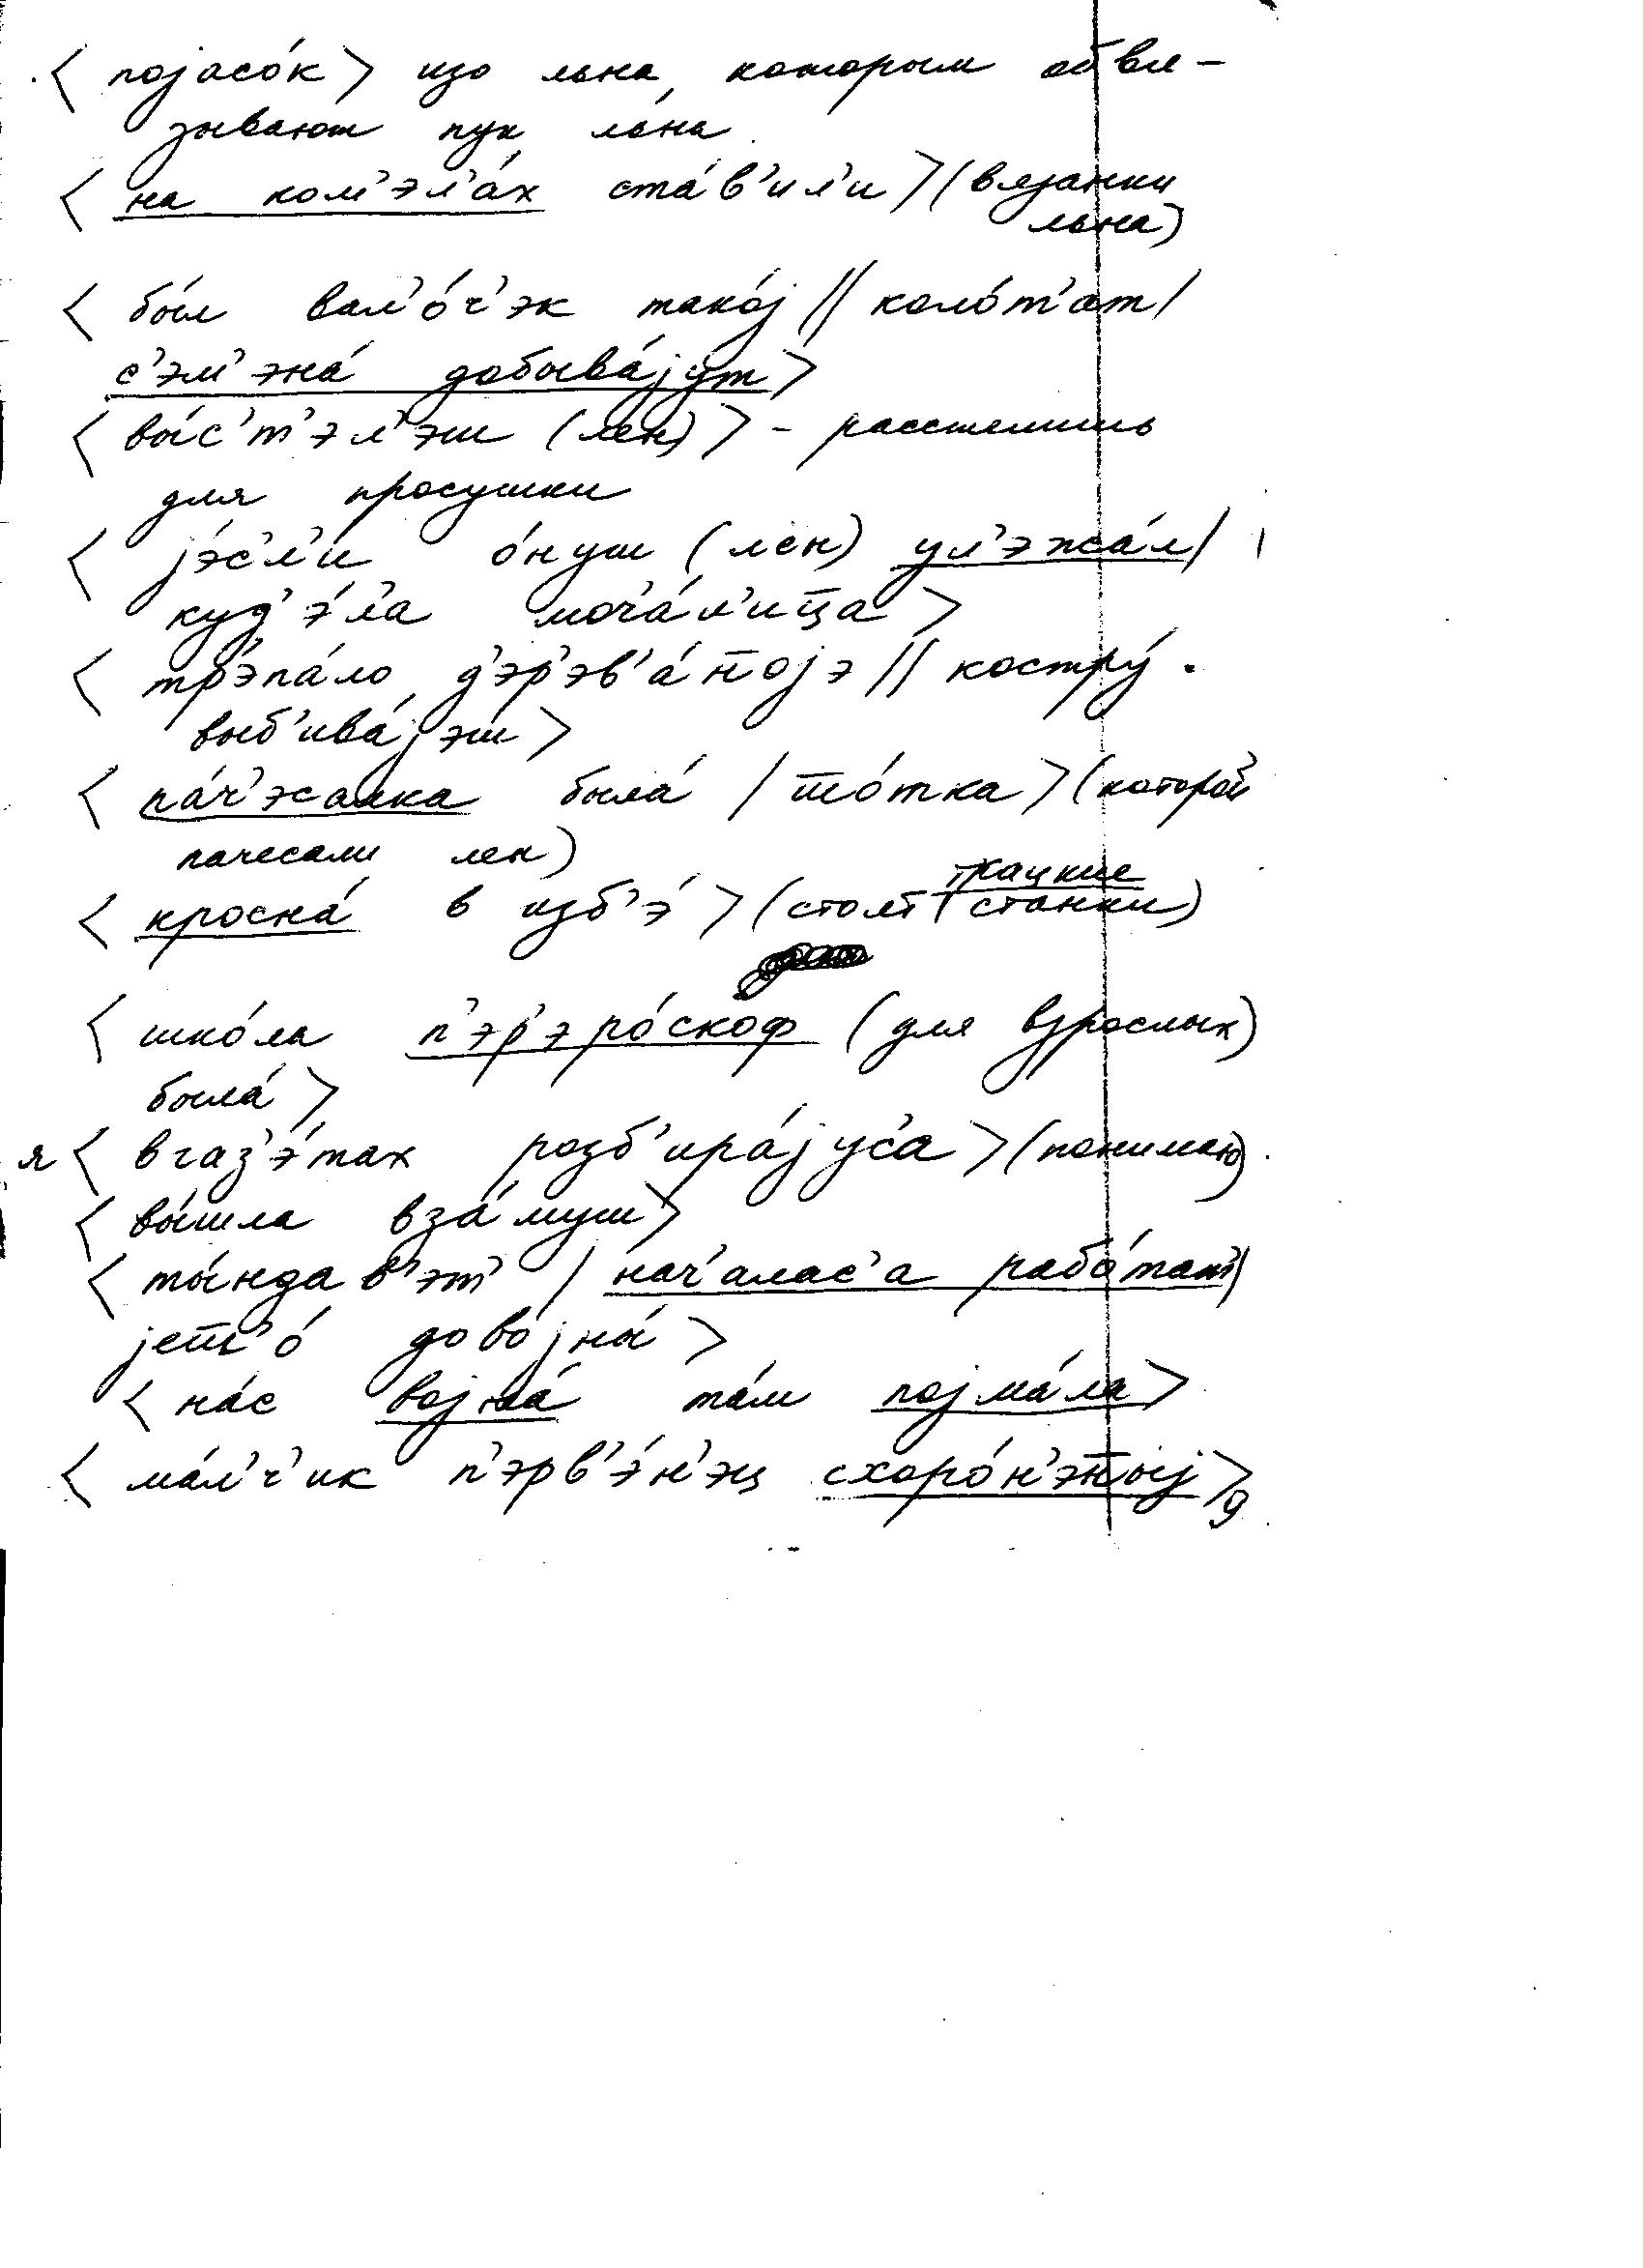 < појасо́к > изо льна, которым обвя-
зывают пук льна.
< на ком'эл'а́х ста́в'ил'и > (вязанки
льна)
< бы́л вал'о́ч'эк тако́ј // коло́т'ат /
с'эм'эна́ добыва́јут >
< вы́с'т'эл'эш (лен) > - расстелишь
для просушки
< је́с'л'и о́нуш (лен) ул'эжа́л /
куд'э́л'а моч'а́л'ица >
< тр'эпа́ло д'эр'эв'а́н̄ојэ // костру́
выб'ива́јэш >
< па́ч'эсалка была́ / ш̄о́тка > (которой
пачесали лен)
< кросна́ в изб'э́ > (стоят ткацкие станки)
< шко́ла п'эр'эро́скоф (для взрослых)
была́ >
я < в газ'э́тах розб'ира́јус'а > (понимаю).
< вы́шла вза́муш >
< ты́нда в'эт' / нач'алас'а рабо́тат' /
јеш̄'о́ дово́јны́ >
< на́с војна́ та́м појма́ла >
< ма́л'ч'ик п'эрв'э́н'эц схоро́н'эн̄ыј >
9